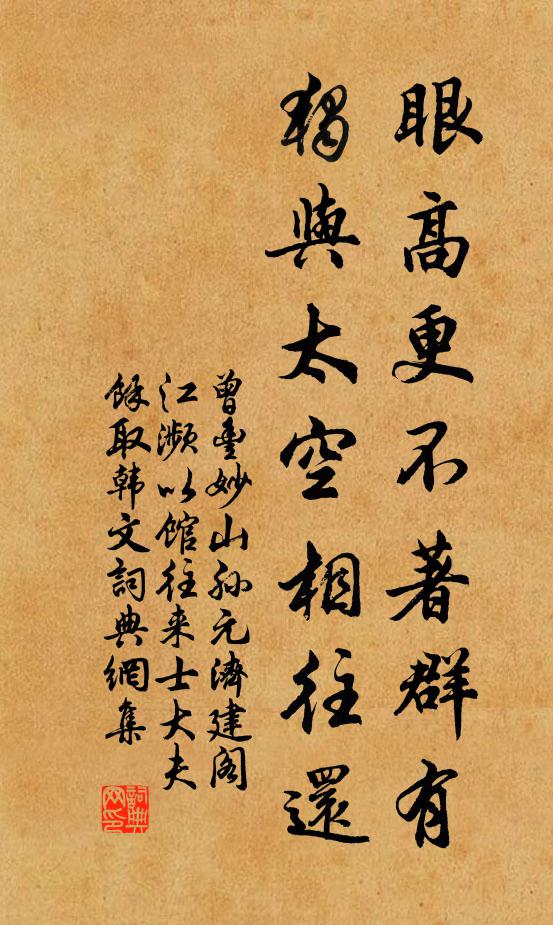 眼高更不著群有
獨與太空相往還
曾豐妙山孫元濟建閣
江瀕以館往来士大夫
餘取韓文詞典網集
詞典網印